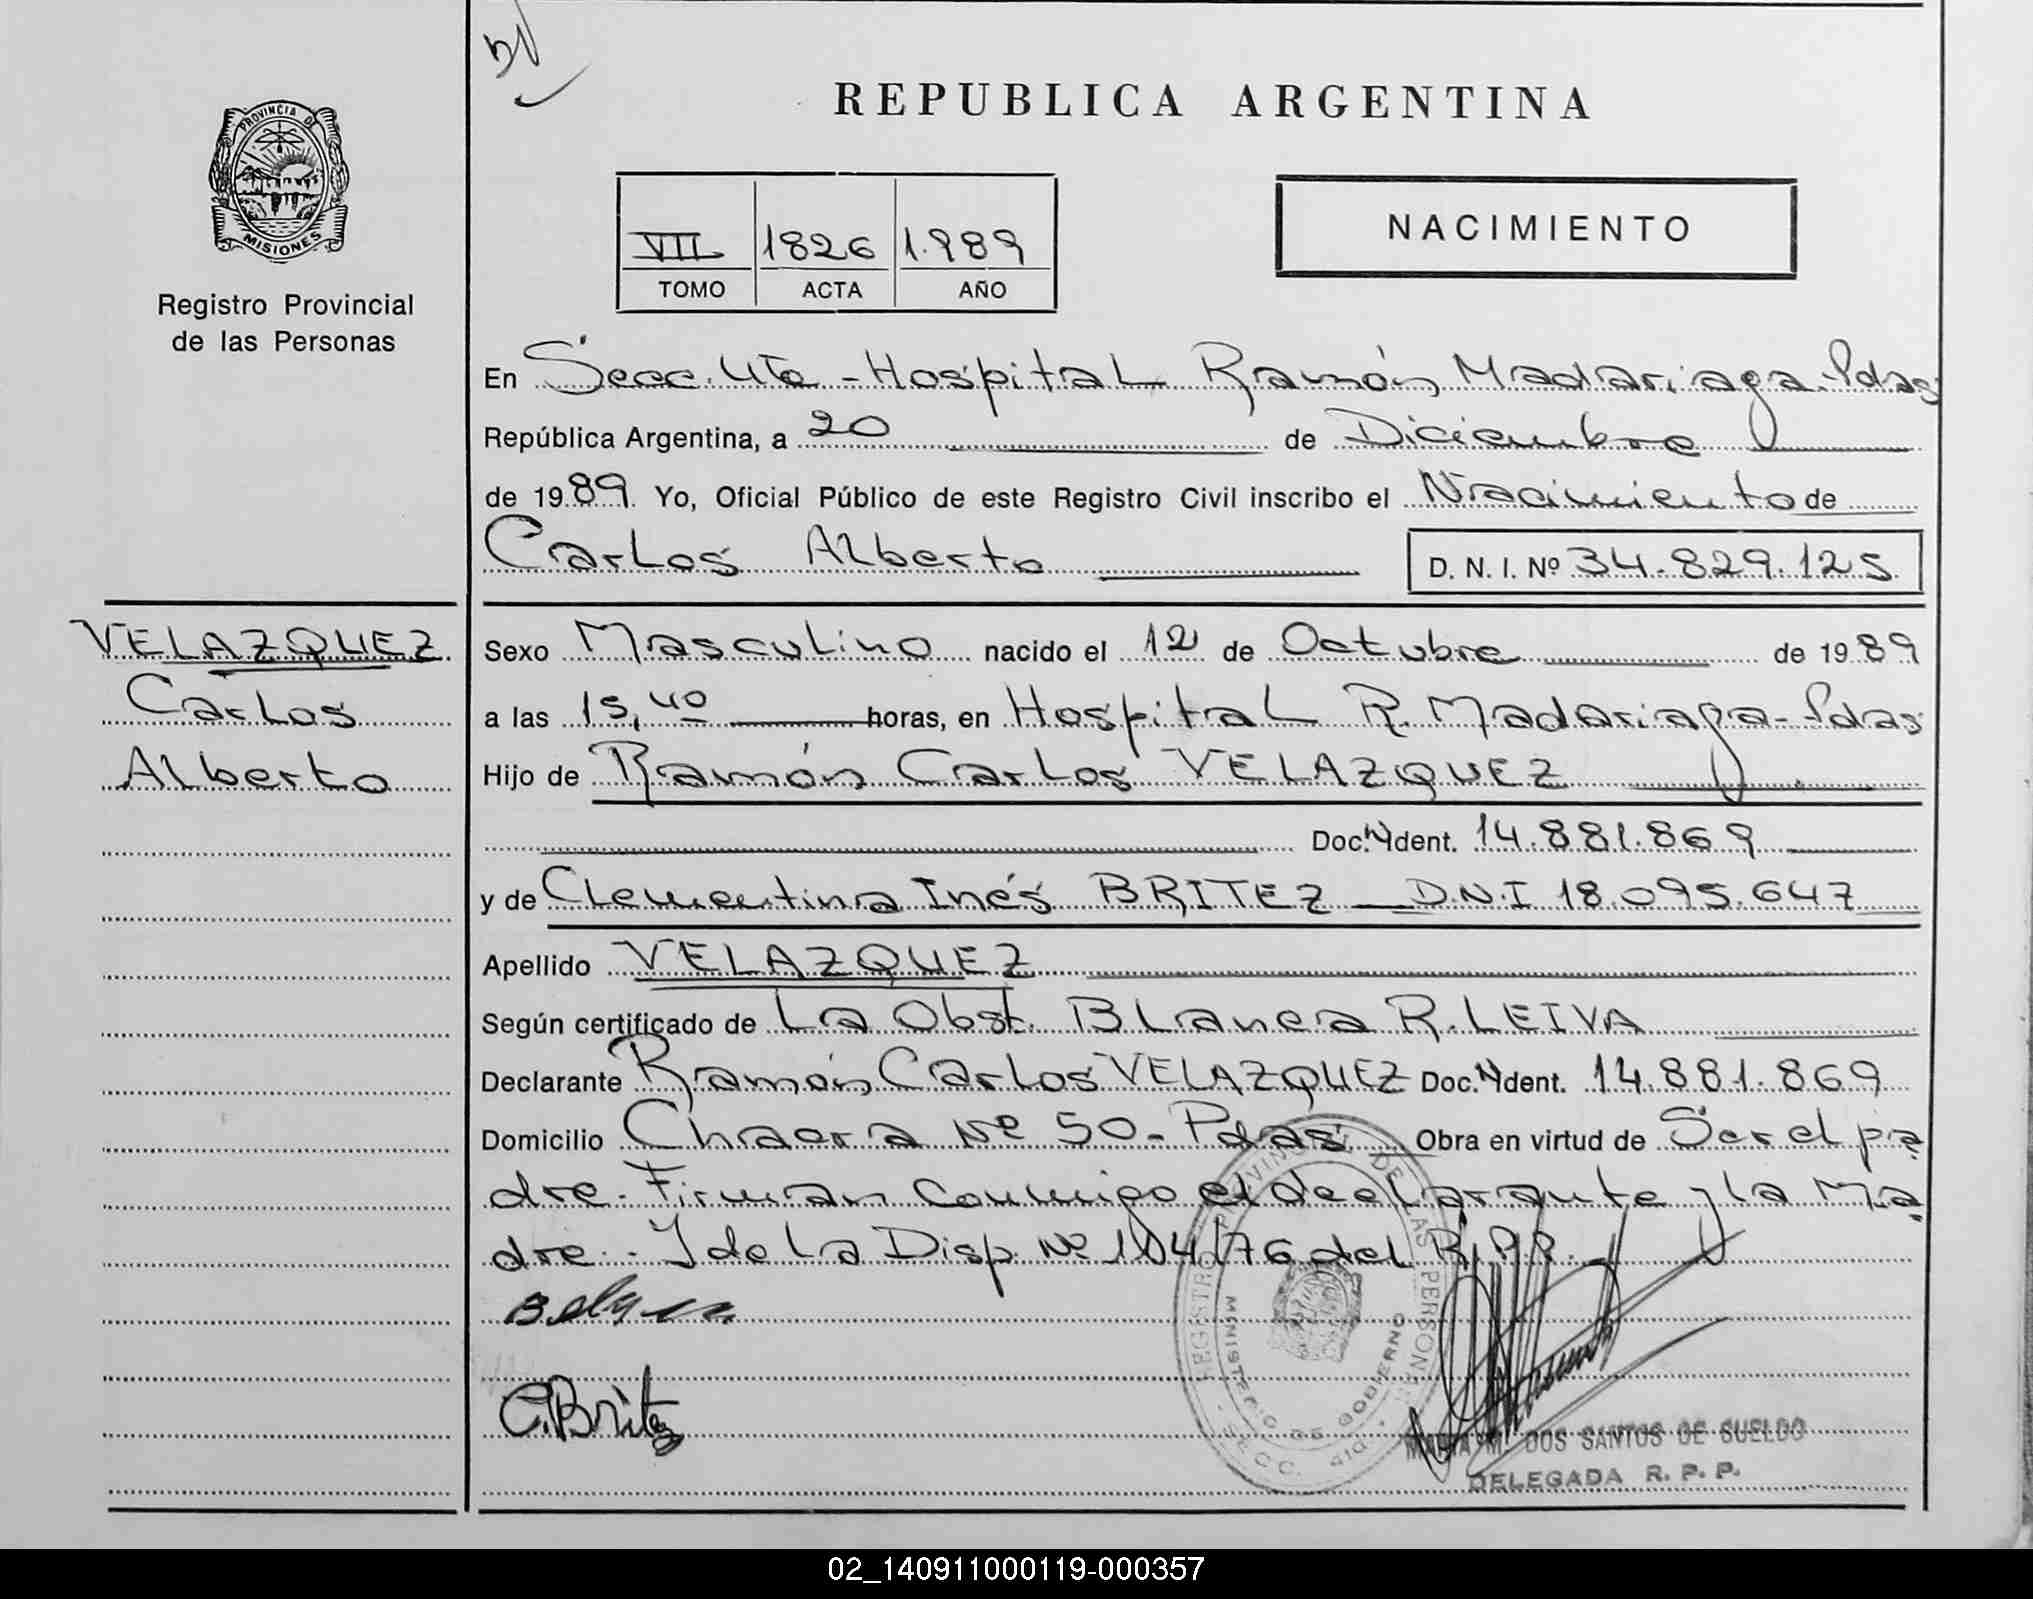 REPUBLICA ARGENTINA
PROVINCIA D
MISIONES
Registro Provincial
de las Personas
VII 1826 1.989
TOMO ACTA AÑO
NACIMIENTO
En Secc. 4ta - Hospital Ramón Madariaga - Pdas
República Argentina, a 20 de Diciembre
de 1989. Yo, Oficial Público de este Registro Civil inscribo el Nacimiento de
Carlos Alberto D. N. I. Nº 34.829.125
VELAZQUEZ
Carlos
Alberto
Sexo Masculino nacido el 12 de Octubre de 1989
a las 15,40 horas, en Hospital R. Madariaga - Pdas
Hijo de Ramón Carlos VELAZQUEZ
Doc. Ident. 14.881.869
y de Clementina Inés BRITEZ D.N.I 18.095.647
Apellido VELAZQUEZ
Según certificado de La Obst. Blanca R. LEIVA
Declarante Ramón Carlos VELAZQUEZ Doc. Ident. 14.881.869
Domicilio Chacra Nº 50 - Pdas Obra en virtud de Ser el pa
dre. Firman conmigo el declarante y la Ma
dre. Y de la Disp. Nº 104/76 del R.P.P.
C. Britez
REGISTRO PROVINCIAL DE LAS PERSONAS
MINISTERIO DE GOBIERNO
SECC. 4ta.
MARIA M. DOS SANTOS DE SUELDO
DELEGADA R. P. P.
02_140911000119-000357